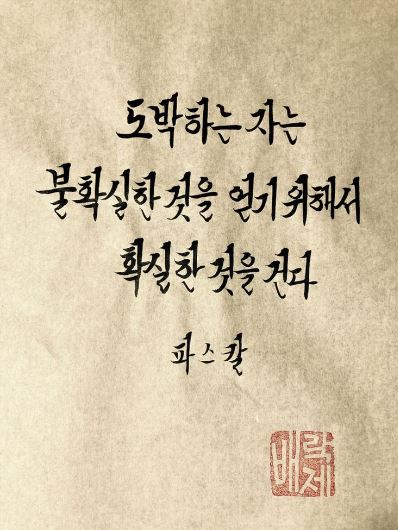 도박하는 자는
불확실한 것을 얻기 위해서
확실한 것을 건다
파스칼